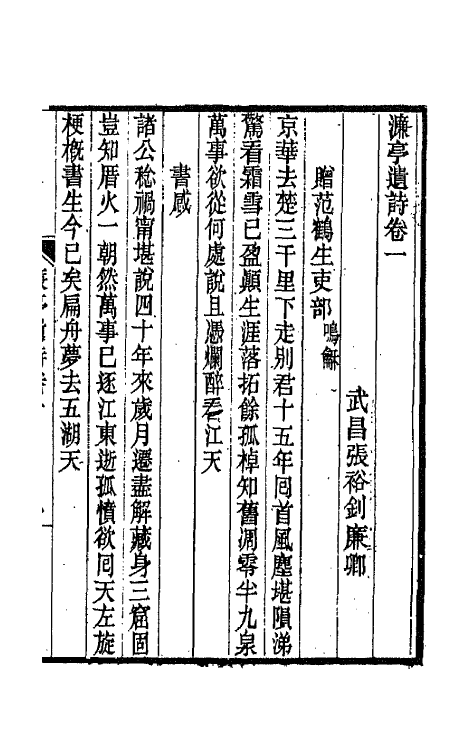 濂亭遺詩卷一
武昌張裕釗廉卿
贈范鶴生吏部鳴龢
京華去楚三千里下走別君十五年囘首風塵堪隕涕
驚看霜雪已盈顚生涯落拓餘孤棹知舊凋零半九泉
萬事欲從何處說且憑爛醉看江天
書感
諸公稔禍甯堪說四十年來歲月遷盡解藏身三窟固
豈知厝火一朝然萬事已逐江東逝孤憤欲囘天左旋
梗槪書生今已矣扁舟夢去五湖天